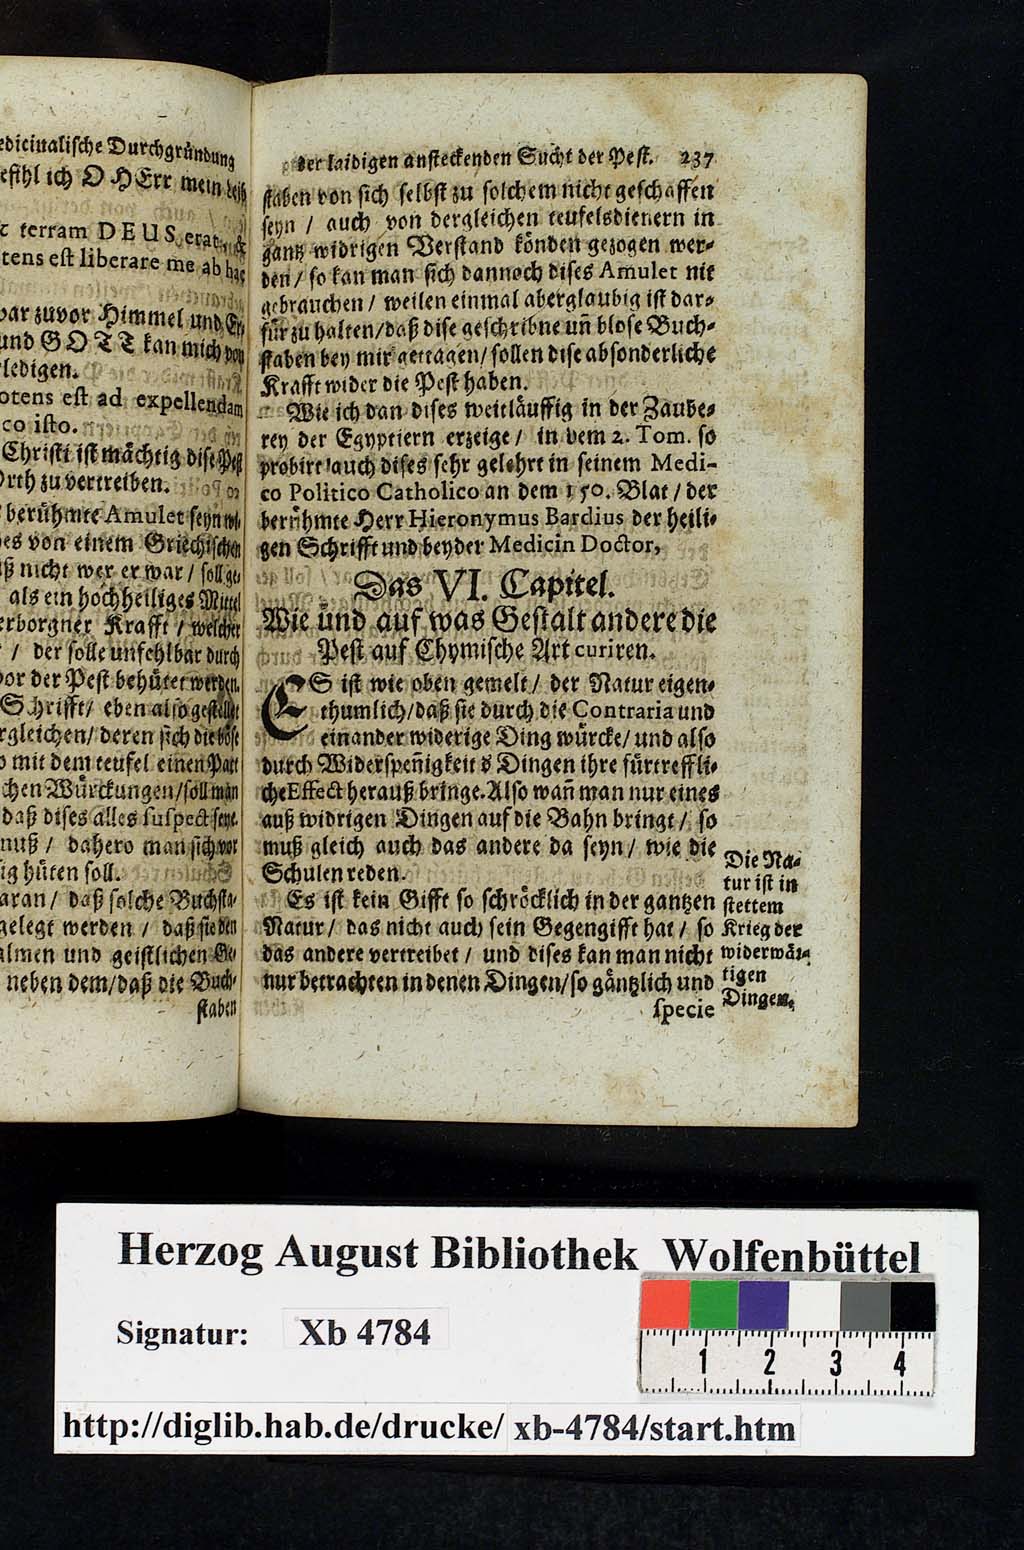 edicinalische Durchgründung
efihl ich O HErr mein
terram DEUS erat, &
tens est liberare me ab hac
bar zuvor Himmel und
und GOTT kan mich von
ledigen.
otens est ad expellendam
co isto.
Christi ist mächtig dise Pest
Orth zu vertreiben.
berühmte Amulet seyn
es von einem Griechischen
ß nicht wer er war / soll
als ein hochheiliges Mittel
erborgner Krafft / welcher
/ der solle unfehlbar durch
or der Pest behütet werden.
Schrifft / eben also gestellet
rgleichen / deren sich die böse
mit dem teufel einen Pact
chen Würckungen / soll man
daß dises alles suspect seye.
muß / dahero man sich vor
ig hüten soll.
aran / daß solche Buchsta-
gelegt werden / daß sie den
almen und geistlichen Ge-
neben dem / daß die Buch-
staben
der laidigen ansteckenden Sucht der Pest. 237
staben von sich selbst zu solchem nicht geschaffen
seyn / auch von dergleichen teufelsdienern in
gantz widrigen Verstand könden gezogen wer-
den / so kan man sich dannoch dises Amulet nit
gebrauchen / weilen einmal aberglaubig ist dar-
für zu halten / daß dise geschribne uñ blose Buch-
staben bey mir getragen / sollen dise absonderliche
Krafft wider die Pest haben.
Wie ich dan dises weitläuffig in der Zaube-
rey der Egyptiern erzeige / in dem 2. Tom. so
probirt auch dises sehr gelehrt in seinem Medi-
co Politico Catholico an dem 150. Blat / der
berühmte Herr Hieronymus Bardius der heili-
gen Schrifft und beyder Medicin Doctor,
Das VI. Capitel.
Wie und auf was Gestalt andere die
Pest auf Chymische Art curiren.
ES ist wie oben gemelt / der Natur eigen-
thumlich / daß sie durch die Contraria und
einander widerige Ding würcke / und also
durch Widerspeñigkeit d Dingen ihre fürtreffli-
che Effect herauß bringe. Also wañ man nur eines
auß widrigen Dingen auf die Bahn bringt / so
muß gleich auch das andere da seyn / wie die
Schulen reden.
Es ist kein Gifft so schröcklich in der gantzen
Natur / das nicht auch sein Gegengifft hat / so
das andere vertreibet / und dises kan man nicht
nur betrachten in denen Dingen / so gäntzlich und
specie
Die Na-
tur ist in
stettem
Krieg der
widerwär-
tigen
Dingen.
Herzog August Bibliothek Wolfenbüttel
Signatur: Xb 4784
1 2 3 4
http://diglib.hab.de/drucke/ xb-4784/start.htm